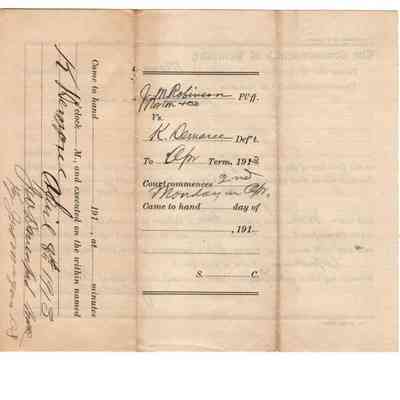 J. M. Robinson Pl'ff.
Norton & Co
Vs.
K. Demaree Def't.
To Apr Term, 1913
Court commences 2nd
Monday in Apr.
Came to hand day of
, 191
S. C.
Came to hand 191 , at minutes
o'clock M., and executed on the within named
K Demaree
April 8th 1913